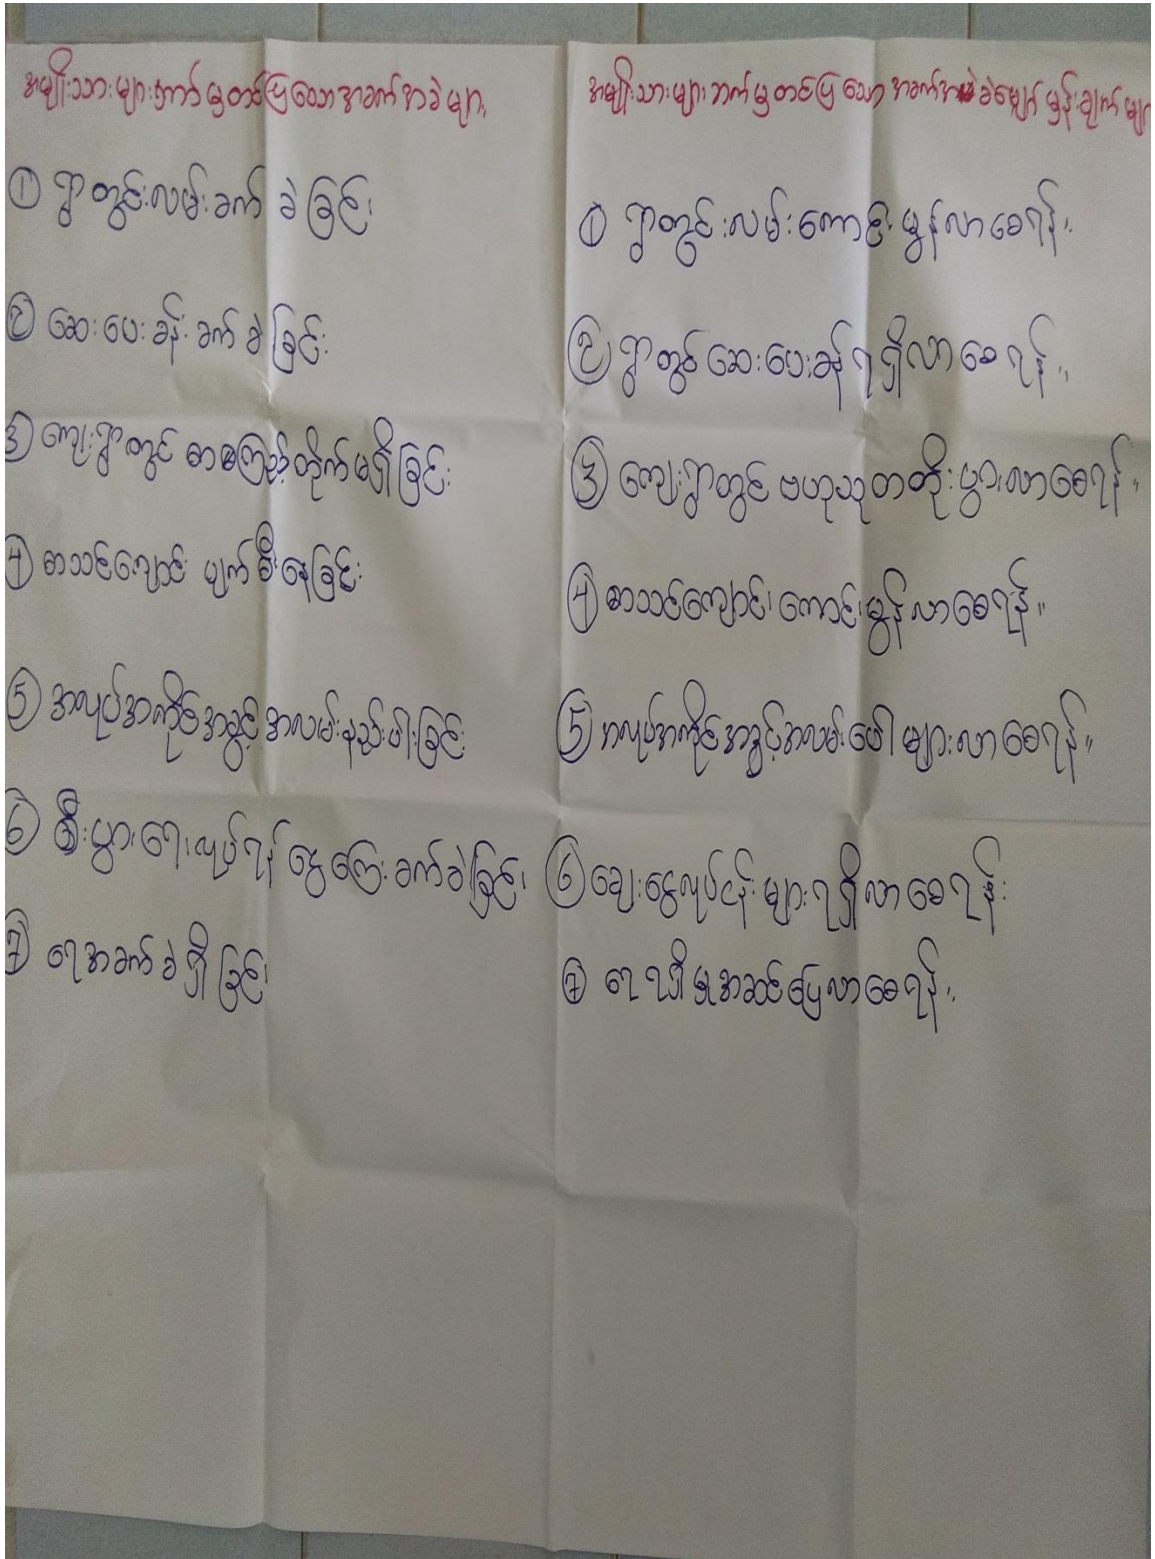 အမျိုးသားများဘက်မှတင်ပြသောအခက်အခဲများ
① ရွာတွင်းလမ်းခက်ခဲခြင်း
② ဆေးပေးခန်းခက်ခဲခြင်း
③ ကျေးရွာတွင် စာကြည့်တိုက်မရှိခြင်း
④ စာသင်ကျောင်း ပျက်စီးနေခြင်း
⑤ အလုပ်အကိုင်အခွင့်အလမ်းနည်းပါးခြင်း
⑥ စီးပွားရေးလုပ်ရန် ငွေကြေးခက်ခဲခြင်း
⑦ ရေအခက်ခဲရှိခြင်း
အမျိုးသားများဘက်မှတင်ပြသော အခက်အခဲမျှော်မှန်းချက်များ
① ရွာတွင်းလမ်းကောင်းမွန်လာစေရန်။
② ရွာတွင်ဆေးပေးခန်းရရှိလာစေရန်။
③ ကျေးရွာတွင် ဗဟုသုတတိုးပွားလာစေရန်။
④ စာသင်ကျောင်းကောင်းမွန်လာစေရန်။
⑤ အလုပ်အကိုင်အခွင့်အလမ်းပေါများလာစေရန်။
⑥ ချေးငွေလုပ်ငန်းများရရှိလာစေရန်း
⑦ ရေရရှိမှုအဆင်ပြေလာစေရန်။